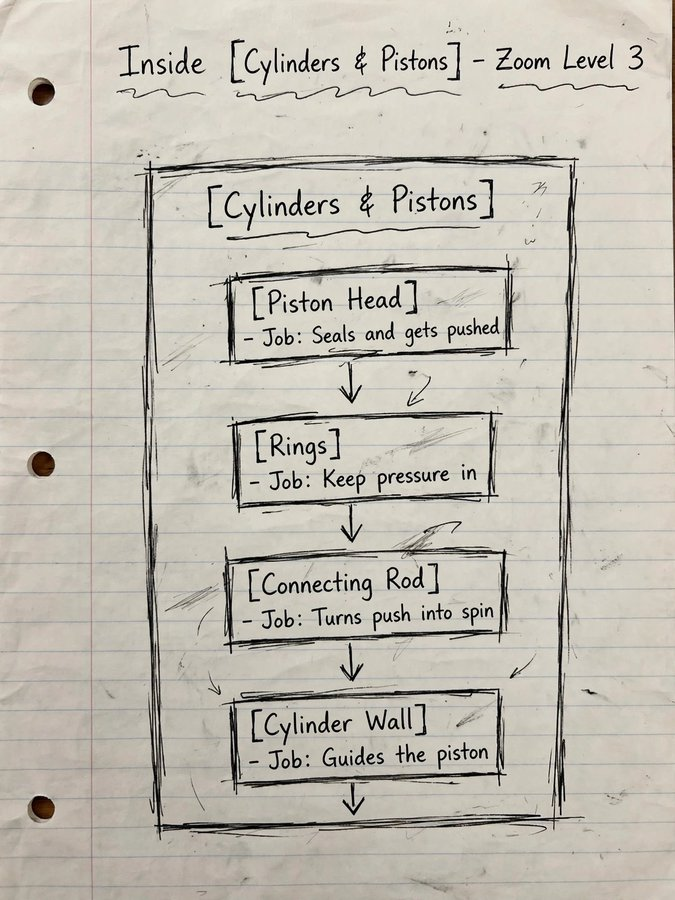 Inside [Cylinders & Pistons] - Zoom Level 3
[Cylinders & Pistons]
[Piston Head]
- Job: Seals and gets pushed
[Rings]
- Job: Keep pressure in
[Connecting Rod]
- Job: Turns push into spin
[Cylinder Wall]
- Job: Guides the piston